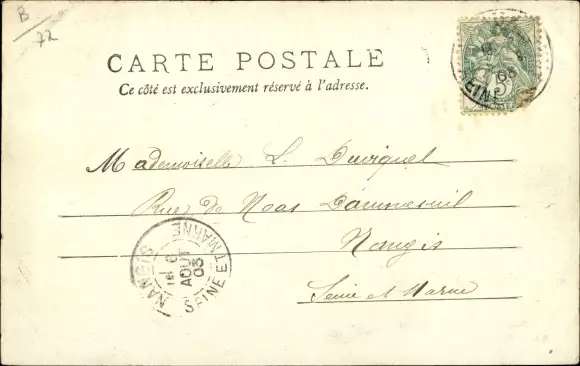 B
72
CARTE POSTALE
Ce côté est exclusivement réservé à l'adresse.
Mademoiselle L. Duviquet
Rue de Noas Dammesnil
Nangis
Seine et Marne
NANGIS
6
AOUT
03
SEINE ET MARNE